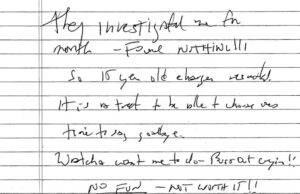 They investigated me for
month – Found NOTHING!!!
So 15 year old charges resulted
It is a treat to be able to choose
time to say goodbye.
Watcha want me to do – Burst out cryin!!
NO FUN – NOT WORTH IT!!